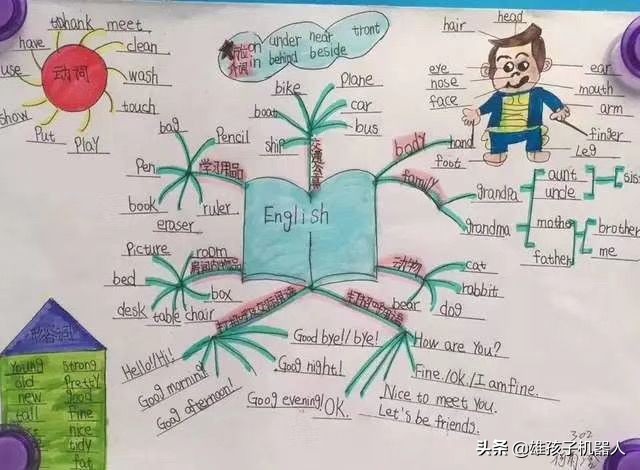 thank meet
have
clean
use
动词
wash
show
touch
Put
Play
on under near front
介词 in behind beside
head
hair
eye
ear
nose
mouth
face
arm
hand
finger
foot
Leg
bike
Plane
boat
car
ship
bus
交通工具
bag
Pencil
Pen
学习用品
book
ruler
eraser
English
body
family
grandpa
aunt
uncle
sis
grandma
mother
father
brother
me
Picture
room
房间内物品
bed
box
desk
table
chair
动物
cat
rabbit
bear
dog
Hello!/Hi!
Goog morning!
Goog afternoon!
Good bye!/ bye!
Goog night!
Goog evening!/OK.
How are You?
Fine./Ok./I am fine.
Nice to meet You.
Let's be friends.
形容词
Young strong
old Pretty
new good
tall fine
nice
tidy
fat
302
头条 @雄孩子机器人